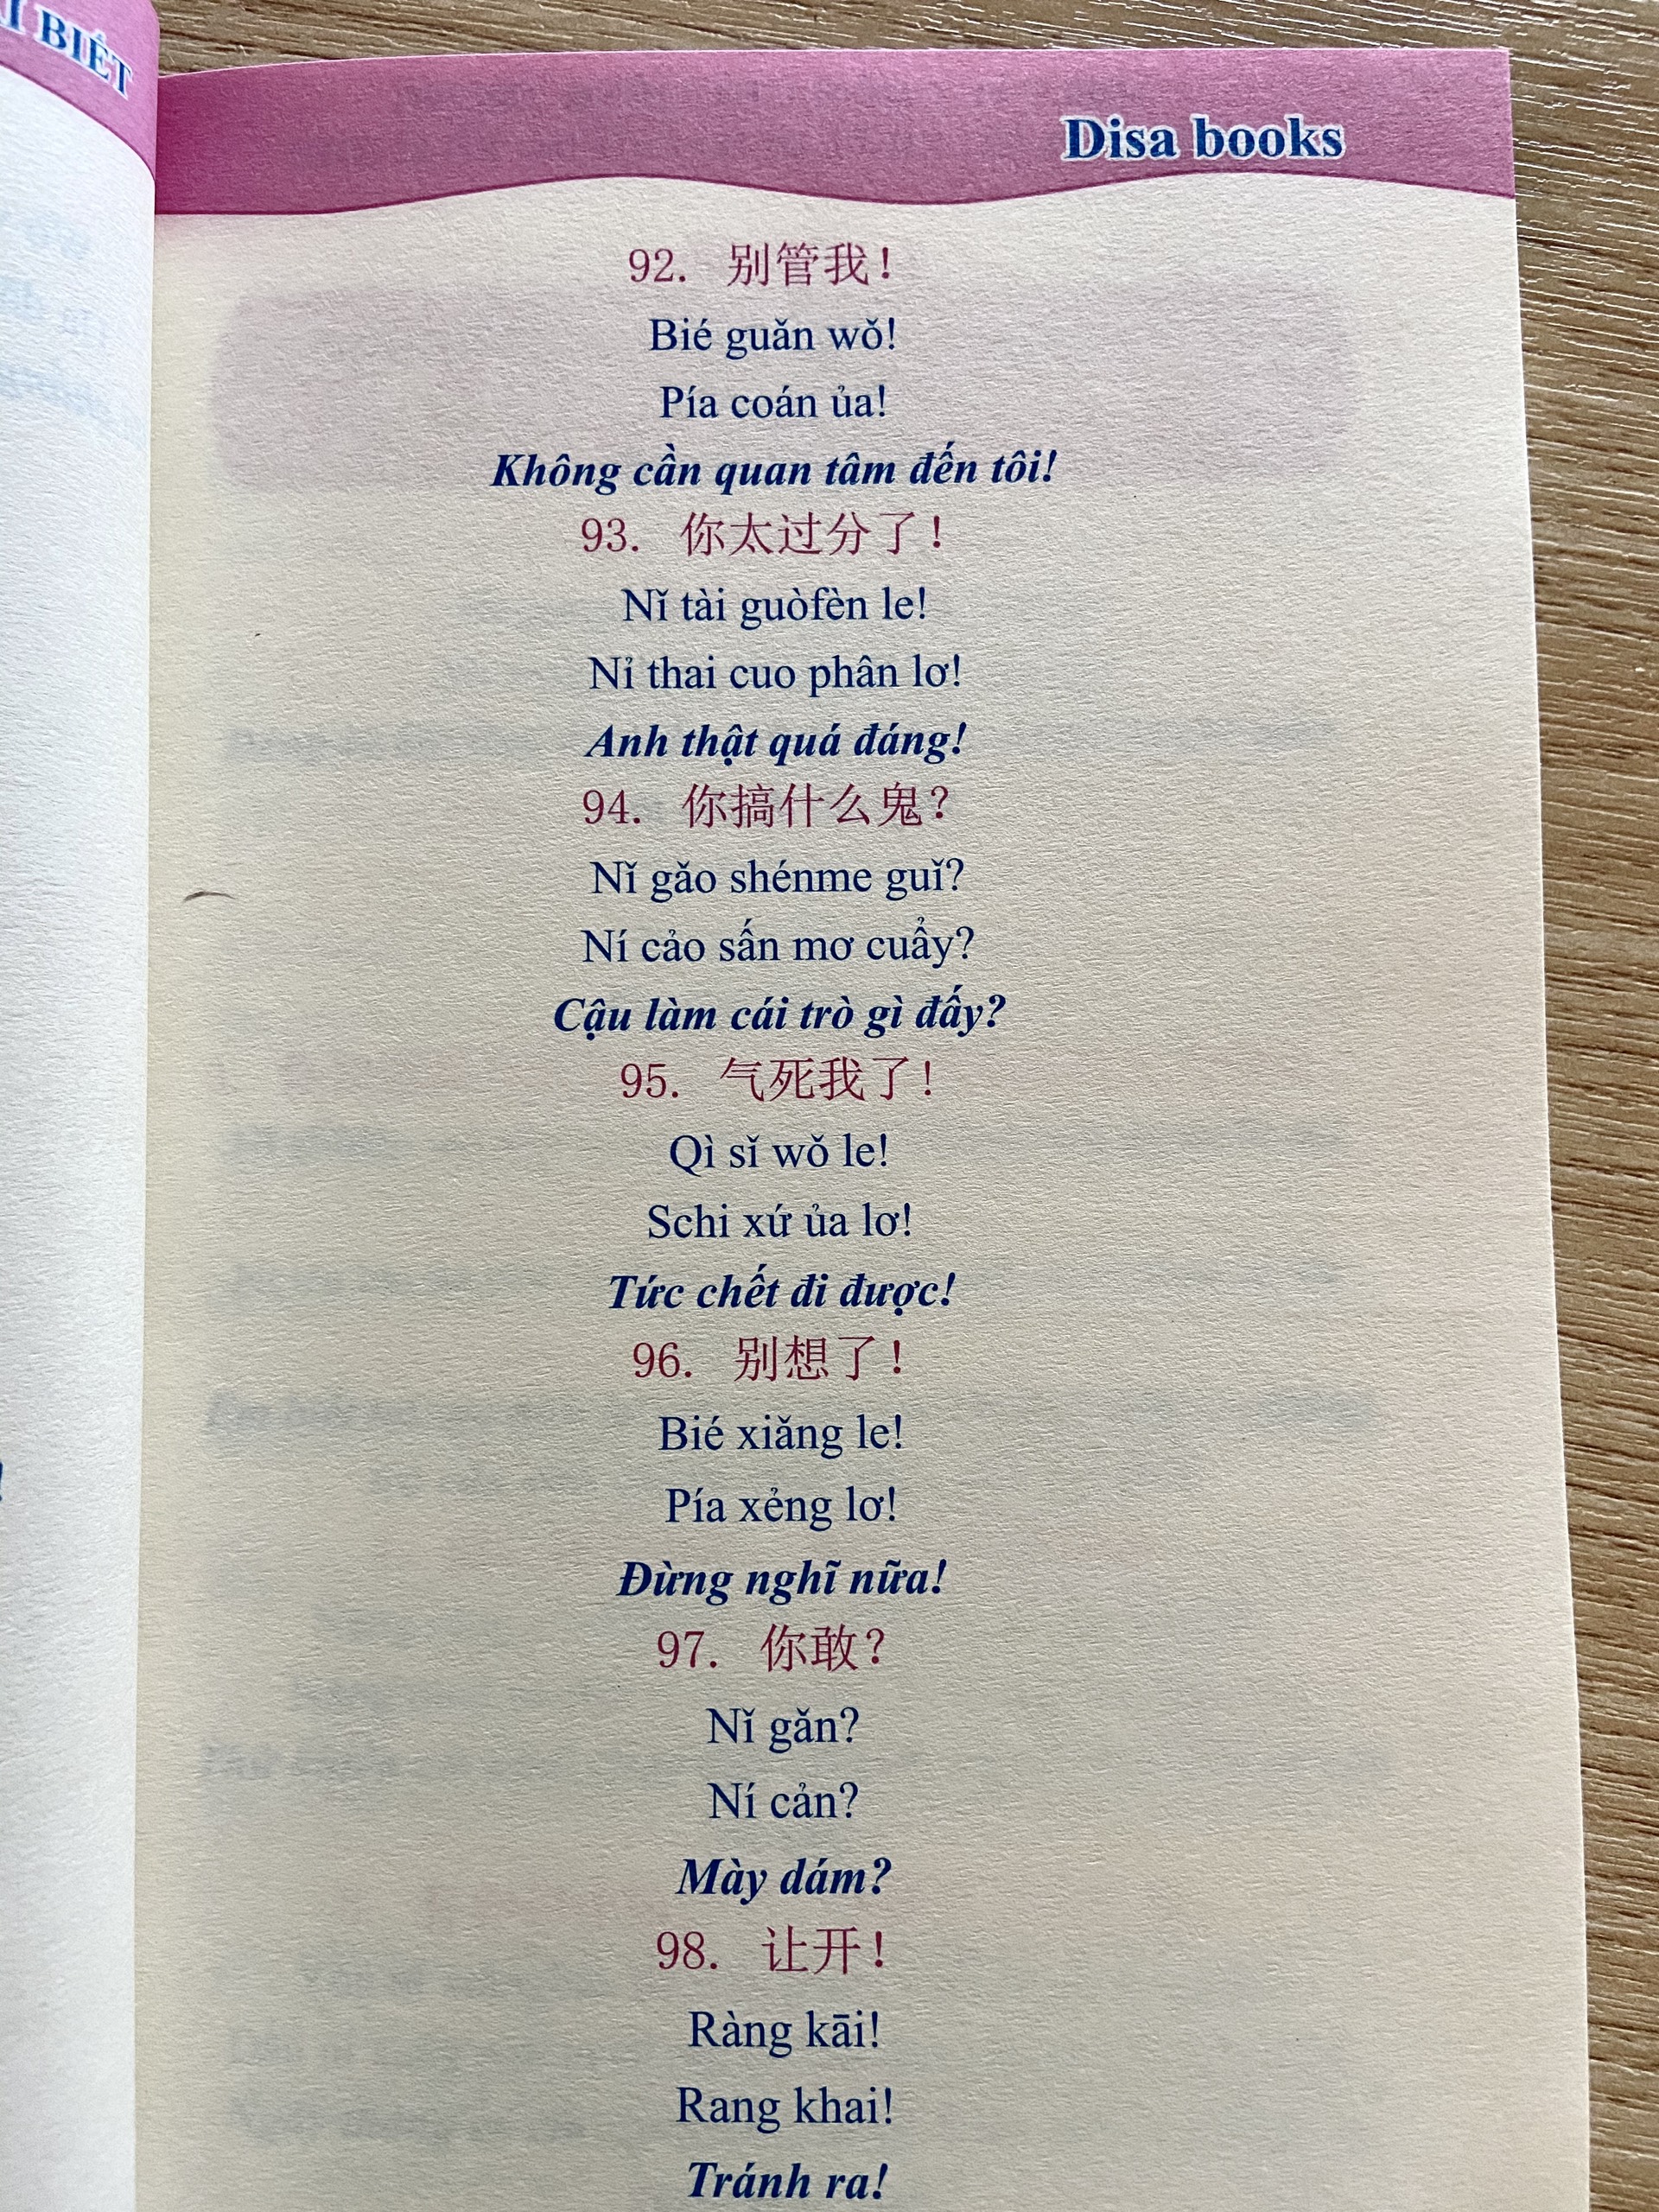 BIẾT
Disa books
92. 别管我!
Bié guǎn wǒ!
Pía coán ủa!
Không cần quan tâm đến tôi!
93. 你太过分了!
Nǐ tài guòfèn le!
Nỉ thai cuo phân lơ!
Anh thật quá đáng!
94. 你搞什么鬼?
Nǐ gǎo shénme guǐ?
Ní cảo sấn mơ cuẩy?
Cậu làm cái trò gì đấy?
95. 气死我了!
Qì sǐ wǒ le!
Schi xứ ủa lơ!
Tức chết đi được!
96. 别想了!
Bié xiǎng le!
Pía xẻng lơ!
Đừng nghĩ nữa!
97. 你敢?
Nǐ gǎn?
Ní cản?
Mày dám?
98. 让开!
Ràng kāi!
Rang khai!
Tránh ra!